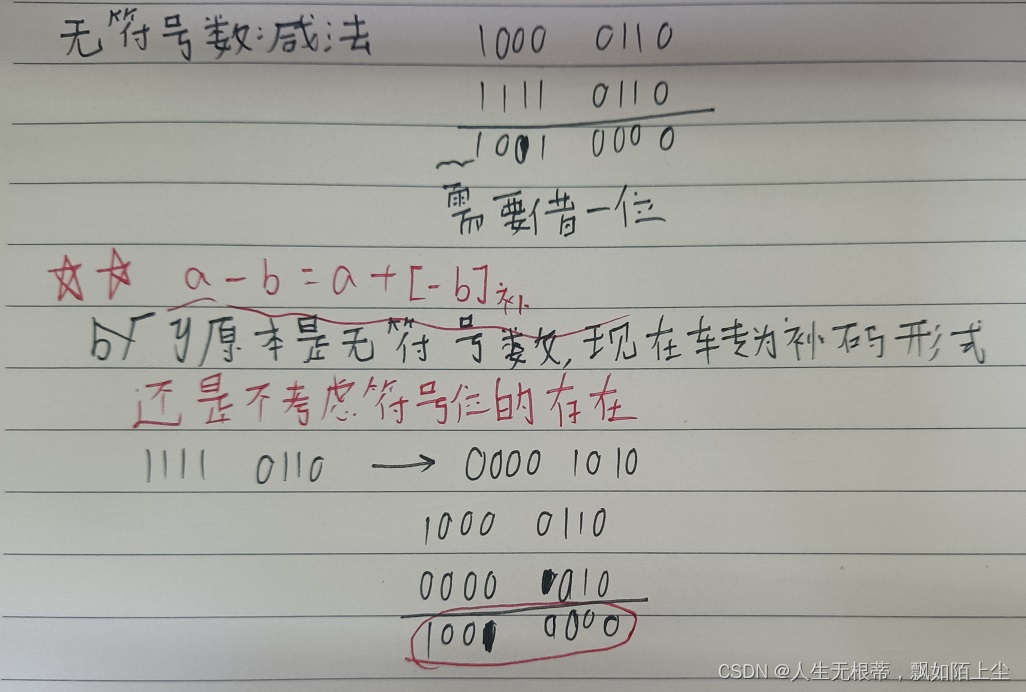 无符号数:减法 1000 0110
1111 0110
1001 0000
需要借一位
☆☆ a - b = a + [-b]补
b厂 y原本是无符号数,现在转为补码形式
还是不考虑符号位的存在
1111 0110 → 0000 1010
1000 0110
0000 1010
1001 0000
CSDN @人生无根蒂,飘如陌上尘